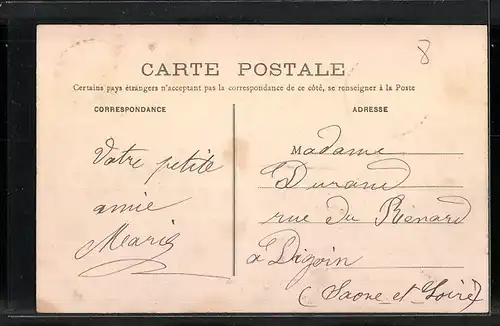 8
CARTE POSTALE
Certains pays étrangers n'acceptant pas la correspondance de ce côté, se renseigner à la Poste
CORRESPONDANCE
Votre petite
amie
Marie
ADRESSE
Madame
Durand
rue du Rénard
à Digoin
(Saone et Loire)